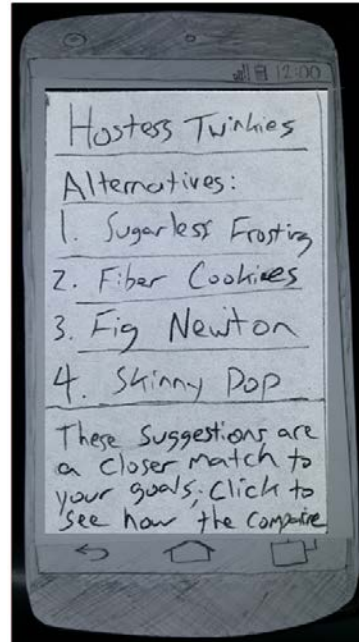 12:00
Hostess Twinkies
Alternatives:
1. Sugarless Frosting
2. Fiber Cookies
3. Fig Newton
4. Skinny Pop
These suggestions are
a closer match to
your goals; Click to
see how the compare